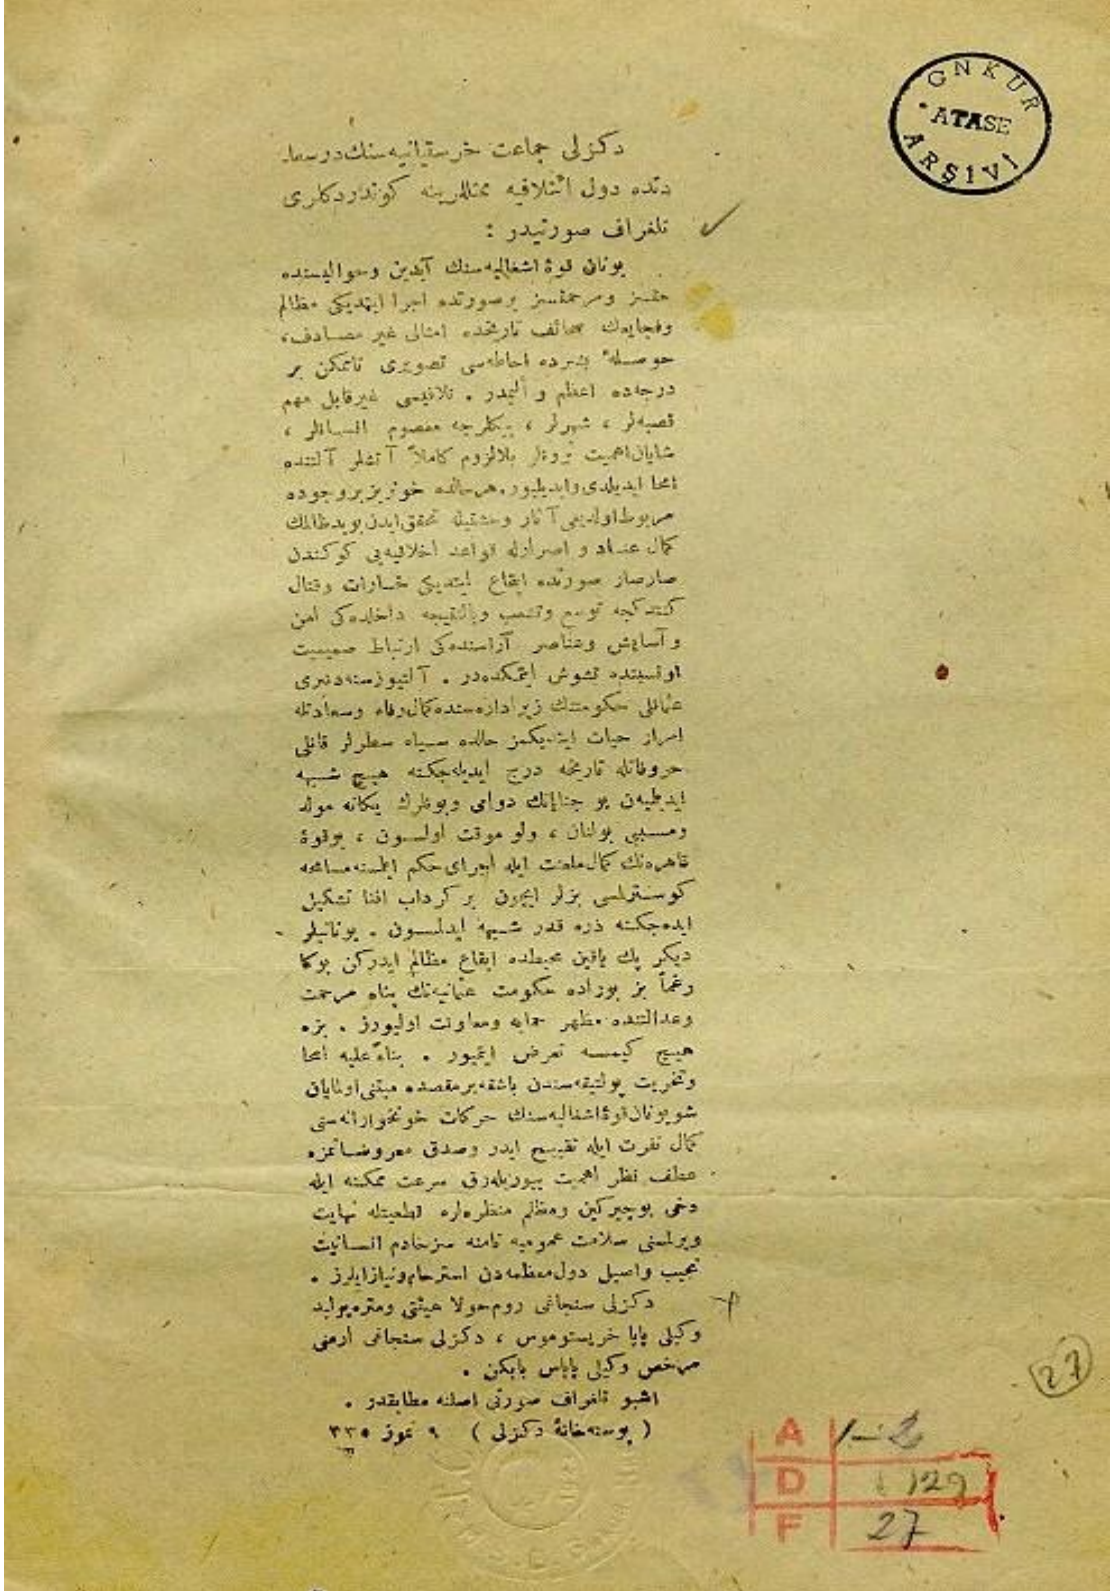 GNKUR
ATASE
ARŞİVİ
دكزلی جماعت خرستیانیه‌سنك درسعا
دتده دول ائتلافیه ممثللرینه كوندردكلری
تلغراف صورتیدر :
یونان قوۀ اشغالیه‌سنك آیدین وحوالیسنده
حقسز ومرحمتسز برصورتده اجرا ایتدیكی مظالم
وفجایعك صحائف تاریخده امثالی غیر مصادف،
حوصلۀ بشرده احاطه‌سی تصویری ناممكن بر
درجه‌ده اعظم و ألیمدر . تلافیسی غیرقابل مهم
قصبه‌لر ، شهرلر ، بیكلرجه معصوم انسانلر ،
شایان اهمیت ثروتلر بلالزوم كاملاً آتشلر آلتنده
امحا ایدیلدی وایدیلیور. هر حالده خونریز بر وجوده
مربوط اولدیغی آثار وحشتیله تحقق ایدن بو ید ظالمك
كمال عناد و اصرارله قواعد اخلاقیه‌یی كوكندن
صارصار صورتده ایقاع ایتدیكی خسارات وقتال
كیتدكجه توسع وتشعب وبالنتیجه داخلده‌كی امن
و آسایش وعناصر آراسنده‌كی ارتباط صمیمیت
او نسبتده تشوش ایتمكده‌در . آلتیوز سنه‌دنبری
عثمانلی حكومتنك زیر اداره‌سنده كمال رفاه وسعادتله
امرار حیات ایتدیكمز حالده سیاه سطرلر قانلی
حروفاتله تاریخه درج ایدیله‌جكنه هیچ شبهه
ایدیلمیه‌ن بو جنایاتك دوامی وبونلرك یكانه مولد
ومسببی بولنان ، ولو موقت اولسون ، بوقوۀ
قاهره‌نك كمال ملعنت ایله اجرای حكم ایتمسنه مسامحه
كوسترلمسی بزلر ایچون بر كرداب افنا تشكیل
ایده‌جكنه ذره قدر شبهه ایدلمسون . یونانیلر
دیكر پك یاقین محیطده ایقاع مظالم ایدركن بوكا
رغماً بز بوراده حكومت عثمانیه‌نك پناه مرحمت
وعدالتنده مظهر حمایه ومعاونت اولیورز . بزه
هیچ كیمسه تعرض ایتمیور . بناءً علیه امحا
وتخریب پولتیقه‌سندن باشقه بر مقصده مبتنی اولمایان
شو یونان قوۀ اشغالیه‌سنك حركات خونخوارانه‌سنی
كمال نفرت ایله تقبیح ایدر وصدق معروضاتمزه
عطف نظر اهمیت بیوریله‌رق سرعت ممكنه ایله
دخی بو چیركین ومظلم منظره‌لره قطعیتله نهایت
ویرلمسنی سلامت عمومیه نامنه سز خادم انسانیت
نجیب واصیل دول معظمه‌دن استرحام ونیاز ایلرز .
دكزلی سنجاغی روم
وكیلی پاپا خریستوموس ، دكزلی سنجاغی ارمنی
مرخص وكیلی پاپاس بابكن .
اشبو تلغراف صورتی اصلنه مطابقدر .
( پوسته‌خانۀ دكزلی ) ٩ تموز ٣٣٥
27
A 1-2
D 129
F 27